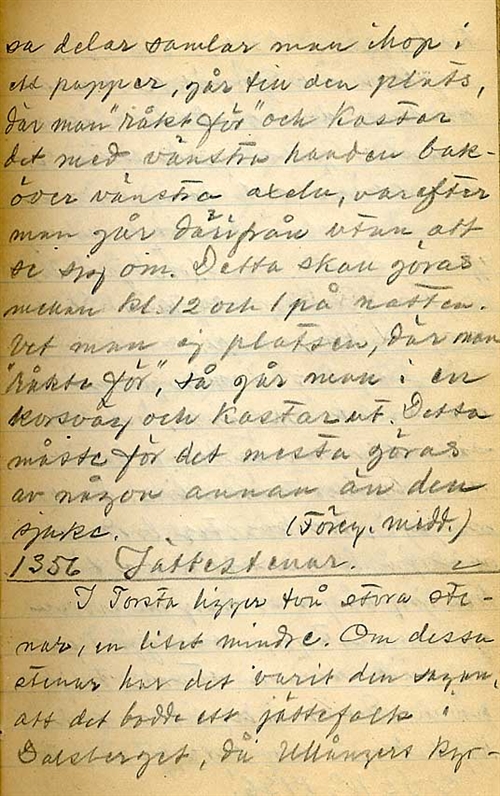 sa delar samlar man ihop i
ett papper, går till den plats,
där man "råkt för" och kastar
det med vänstra handen bak-
över vänstra axeln, varefter
man går därifrån utan att
se sig om. Detta skall göras
mellan kl. 12 och 1 på natten.
Vet man ej platsen, där man
"råkte för", så går man i en
korsväg och kastar ut. Detta
måste för det mesta göras
av någon annan än den
sjuke. (Föreg. medd.)
1356 Jättestenar.
I Torsta ligger två stora ste-
nar, en litet mindre. Om dessa
stenar har det varit den sagan,
att det bodde ett jättefolk i
Dalsberget, då Ullångers kyr-